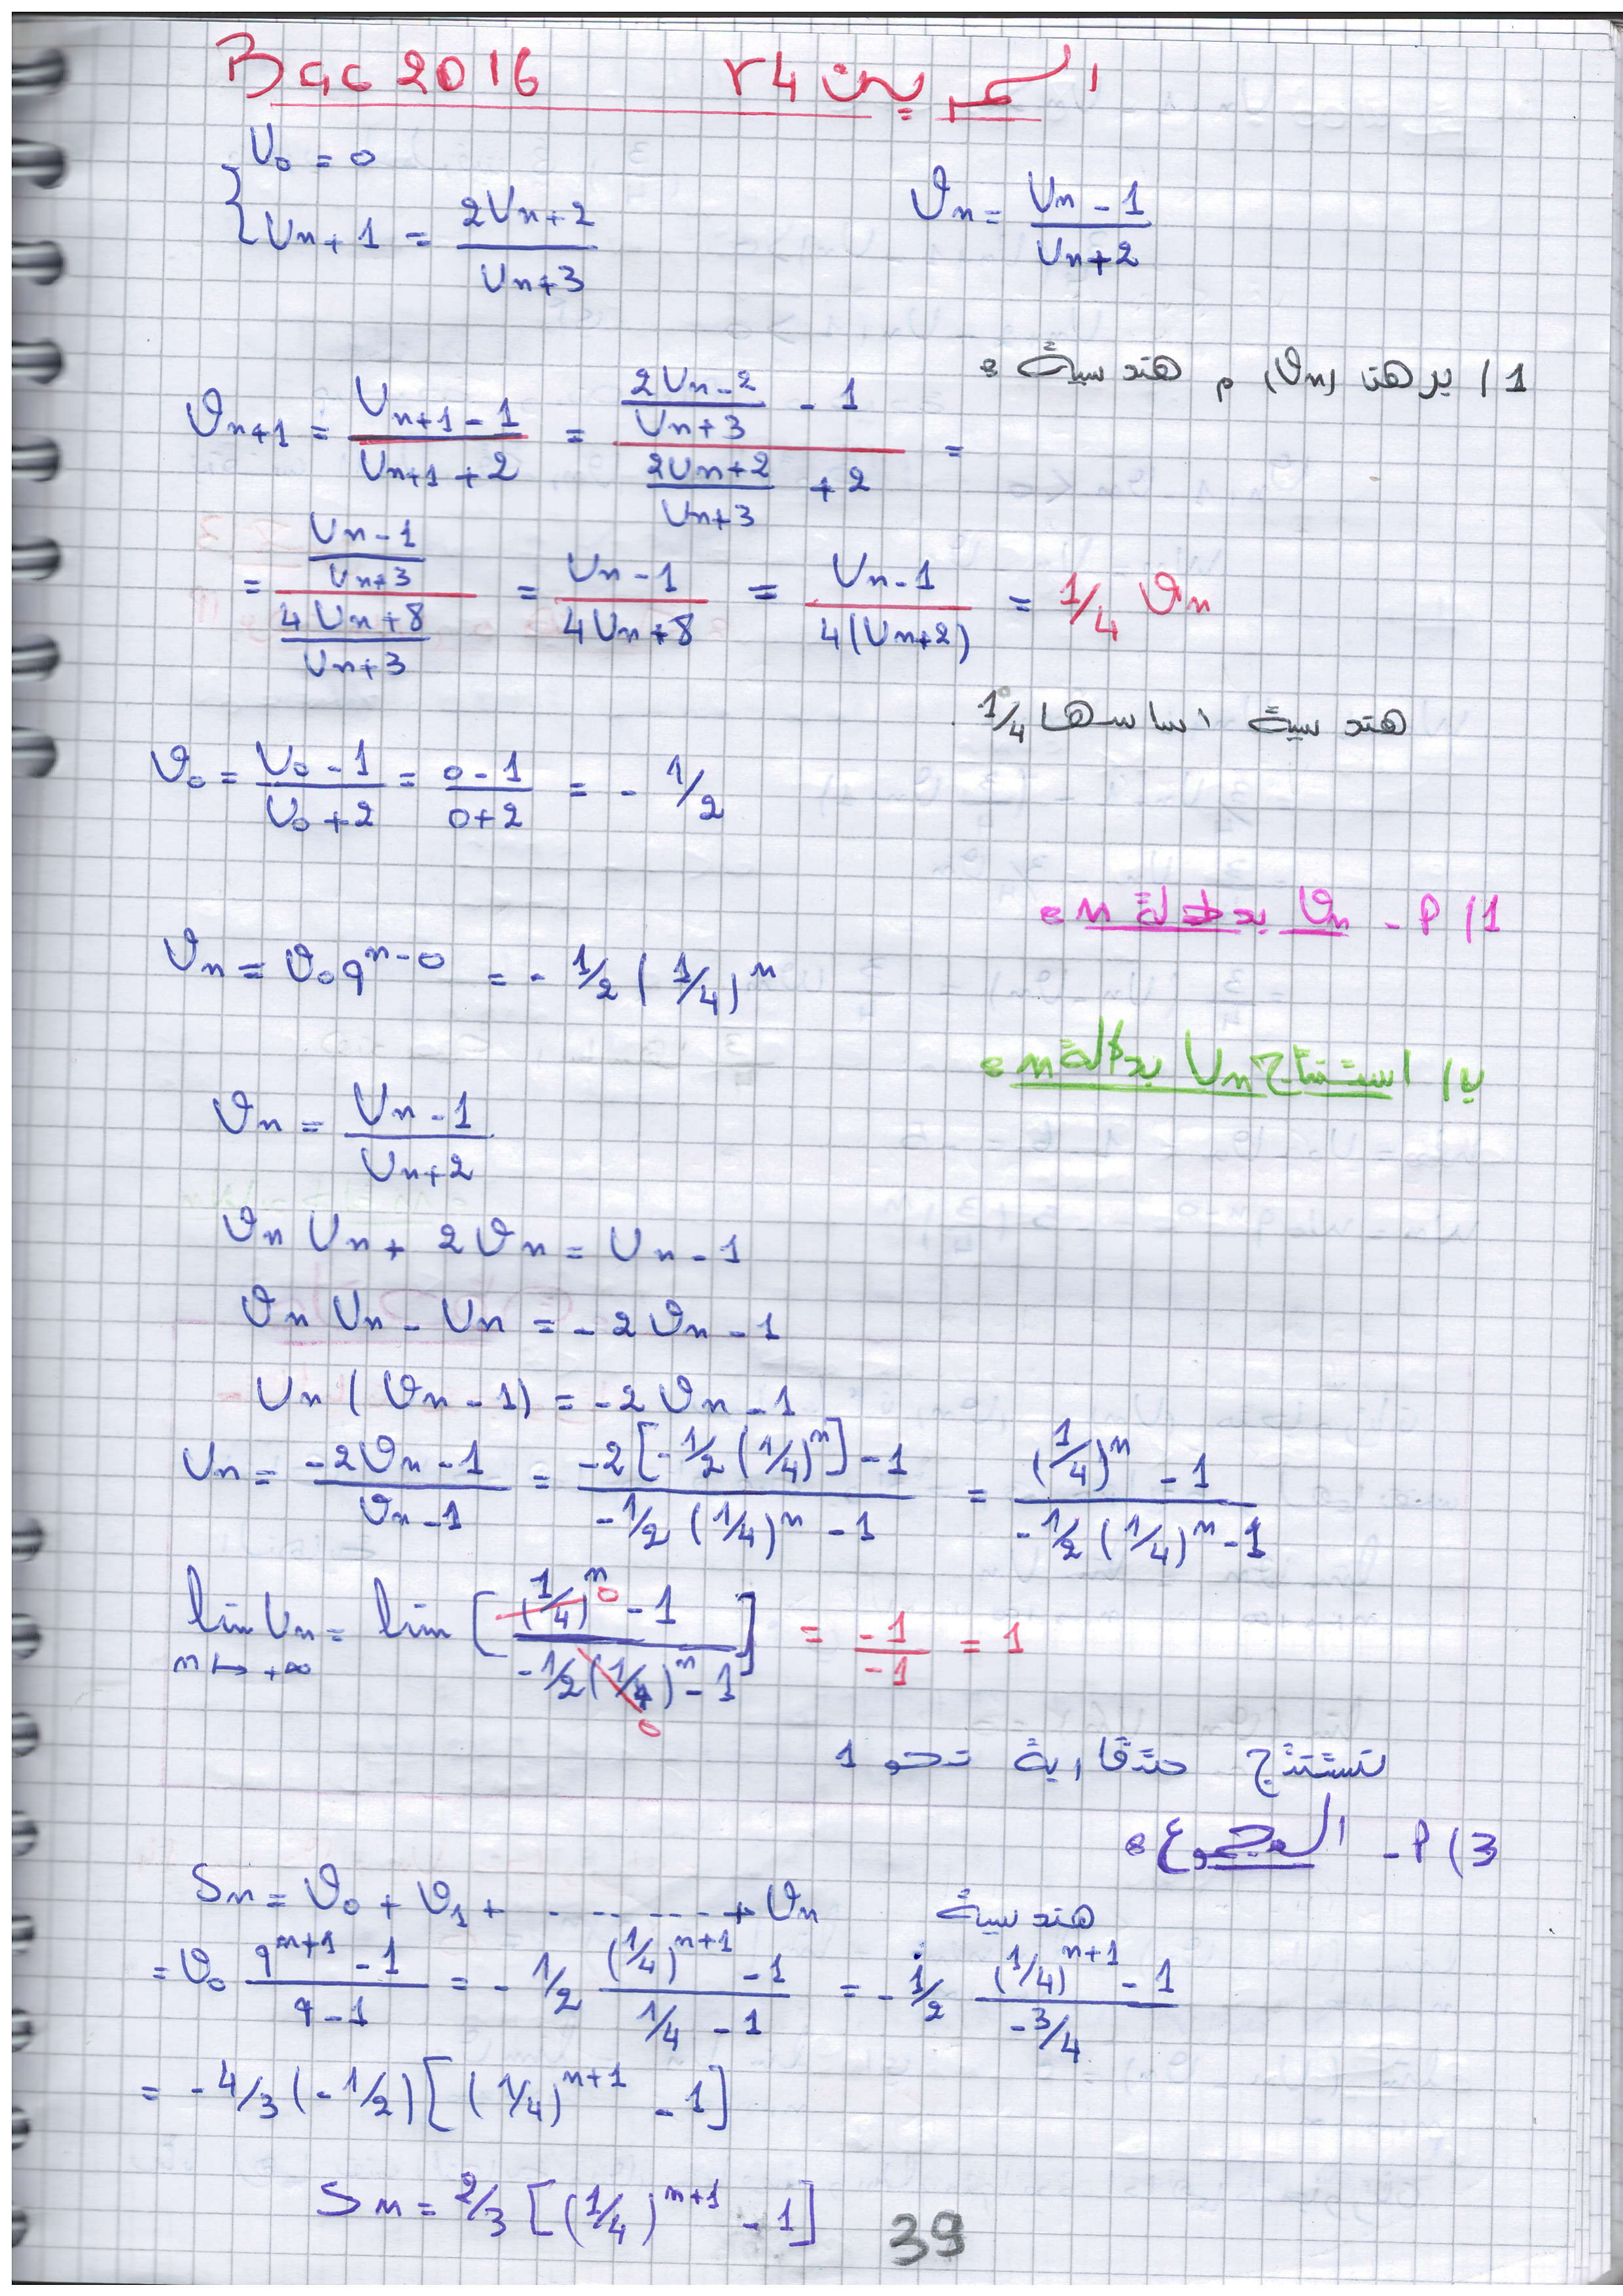 Bac 2016 التمرين 24
U₀ = 0
Uₙ₊₁ = (2Uₙ+2)/(Uₙ+3)    ϑₙ = (Uₙ-1)/(Uₙ+2)
1/ برهن (ϑₙ) م هندسية :
ϑₙ₊₁ = (Uₙ₊₁-1)/(Uₙ₊₁+2) = ((2Uₙ-2)/(Uₙ+3) - 1)/((2Uₙ+2)/(Uₙ+3) + 2) =
= ((Uₙ-1)/(Uₙ+3))/((4Uₙ+8)/(Uₙ+3)) = (Uₙ-1)/(4Uₙ+8) = (Uₙ-1)/(4(Uₙ+2)) = 1/4 ϑₙ
هندسية اساسها 1/4
ϑ₀ = (U₀-1)/(U₀+2) = (0-1)/(0+2) = - 1/2
1/ P - ϑₙ بدلالة n :
ϑₙ = ϑ₀ q^(n-0) = - 1/2 (1/4)^n
ب/ استنتاج Uₙ بدلالة n :
ϑₙ = (Uₙ-1)/(Uₙ+2)
ϑₙ Uₙ + 2ϑₙ = Uₙ - 1
ϑₙ Uₙ - Uₙ = -2ϑₙ - 1
Uₙ (ϑₙ - 1) = -2ϑₙ - 1
Uₙ = (-2ϑₙ-1)/(ϑₙ-1) = (-2[-1/2 (1/4)^n]-1)/(-1/2 (1/4)^n - 1) = ((1/4)^n - 1)/(-1/2 (1/4)^n - 1)
lim Uₙ = lim [((1/4)^n - 1)/(-1/2 (1/4)^n - 1)] = -1/-1 = 1
n ↦ +∞
نستنتج متقاربة نحو 1
3) P - المجموع :
Sn = ϑ₀ + ϑ₁ + - - - - - - + ϑₙ    هندسية
= ϑ₀ (q^(n+1) - 1)/(q-1) = - 1/2 ((1/4)^(n+1) - 1)/(1/4 - 1) = - 1/2 ((1/4)^(n+1) - 1)/(-3/4)
= -4/3 (-1/2) [(1/4)^(n+1) - 1]
Sn = 2/3 [(1/4)^(n+1) - 1]
39